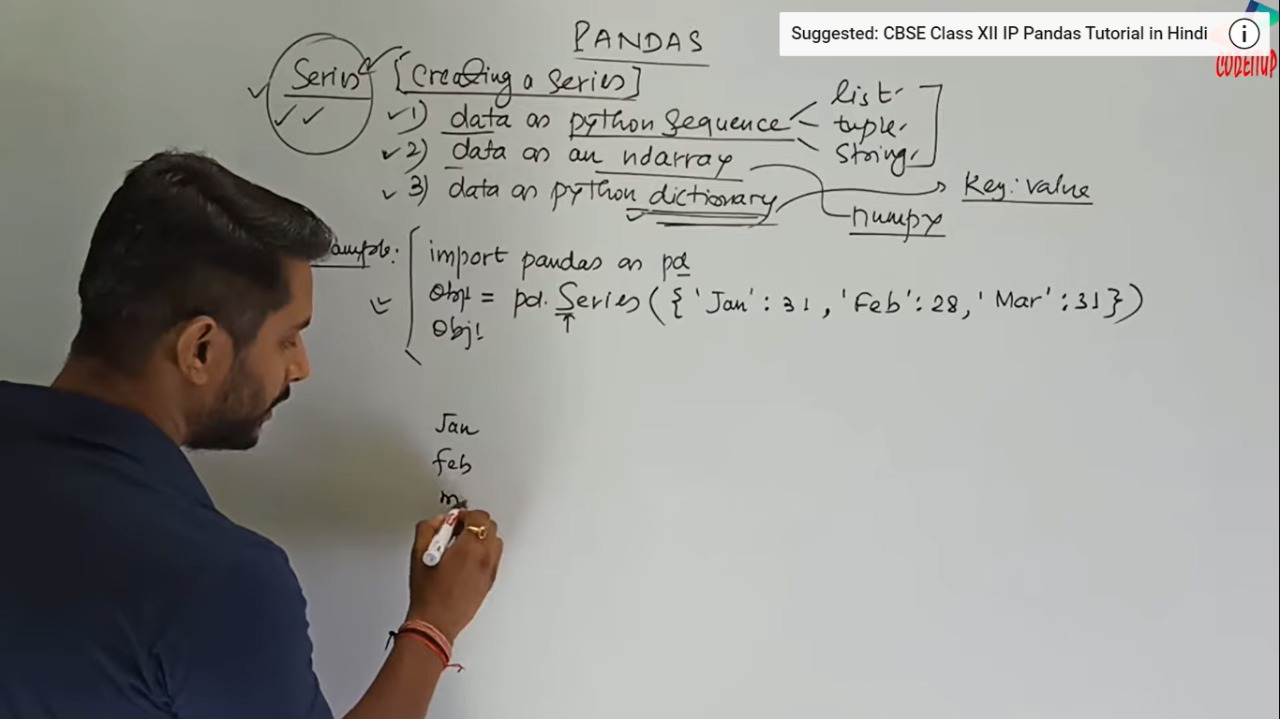 Suggested: CBSE Class XII IP Pandas Tutorial in Hindi
CODEITUP
PANDAS
Series [Creating a Series]
1) data as python sequence
list
tuple
String
2) data as an ndarray
numpy
3) data as python dictionary
Key: value
import pandas as pd
Obj1 = pd. Series ({'Jan': 31, 'Feb': 28, 'Mar': 31})
Obj1
Jan
feb
m